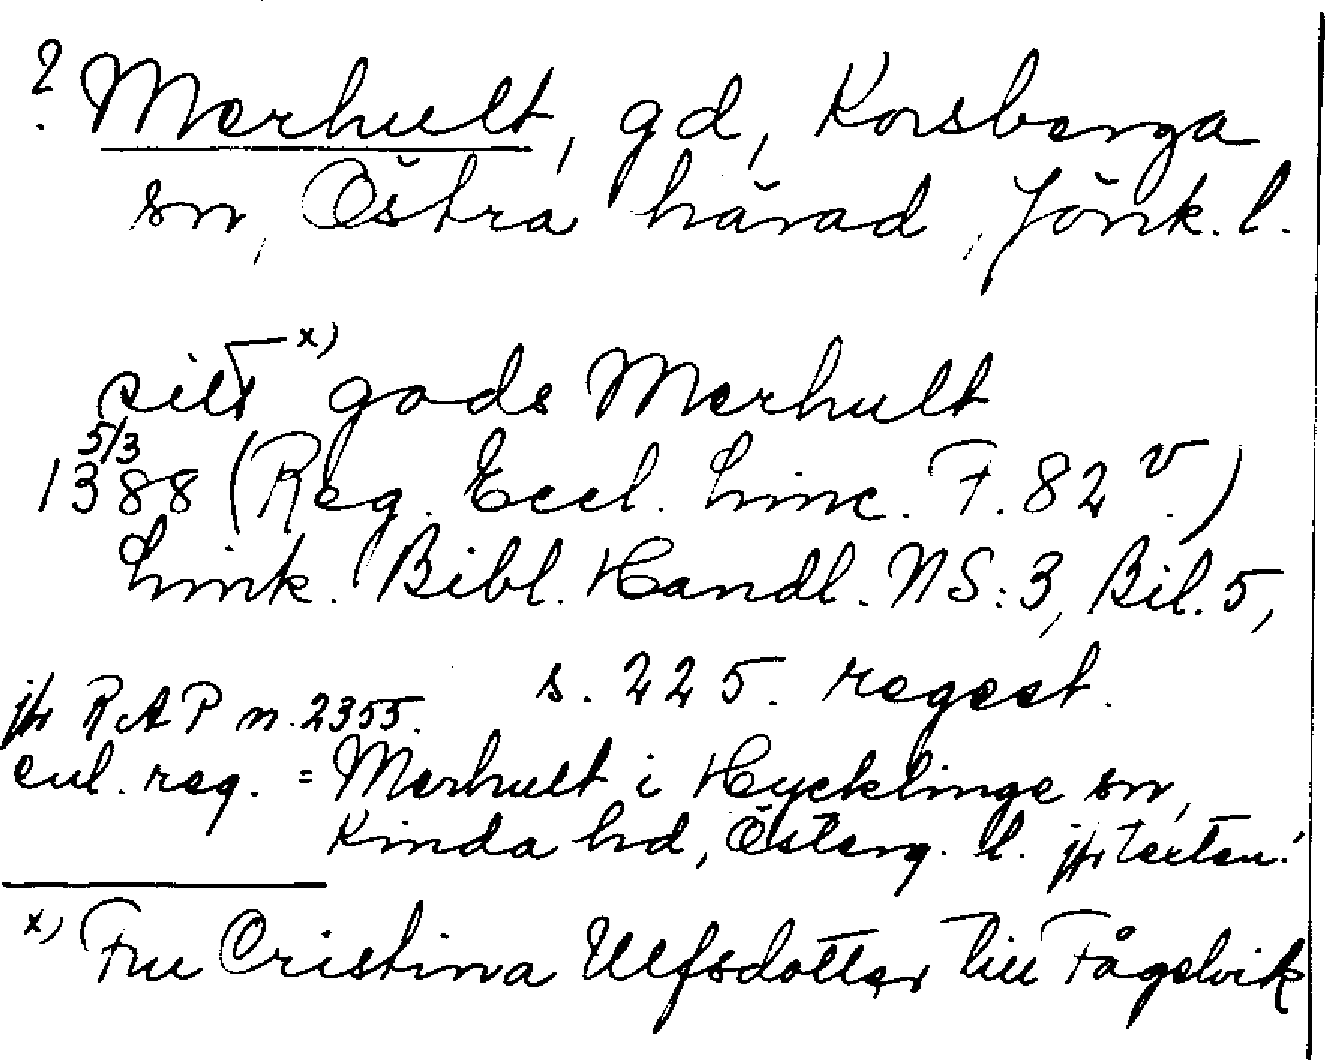 ? Merhult, gd, Korsberga
sn, Östra härad, Jönk. l.
sitt x) gods Merhult
5/3
1388 (Reg. Eccl. Linc. F. 82 v.)
Link. Bibl. Handl. NS: 3, Bil. 5,
s. 225. regest.
jfr RAP n. 2355.
enl. reg. = Merhult i Hycklinge sn,
Kinda hd, Österg. l. jfr texten!
x) Fru Cristina Ulfsdotter till Fågelvik